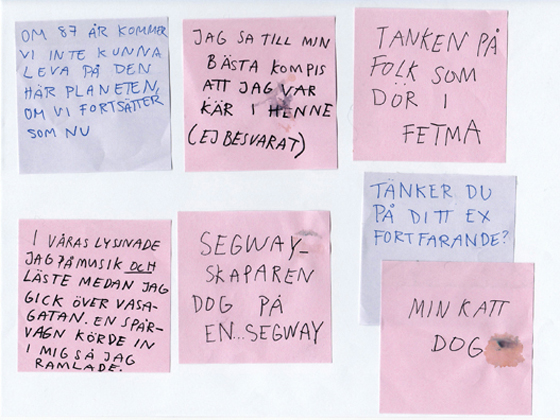 OM 87 ÅR KOMMER
VI INTE KUNNA
LEVA PÅ DEN
HÄR PLANETEN,
OM VI FORTSÄTTER
SOM NU
JAG SA TILL MIN
BÄSTA KOMPIS
ATT JAG VAR
KÄR I HENNE
(EJ BESVARAT)
TANKEN PÅ
FOLK SOM
DÖR I
FETMA
I VÅRAS LYSSNADE
JAG PÅ MUSIK OCH
LÄSTE MEDAN JAG
GICK ÖVER VASA-
GATAN. EN SPÅR-
VAGN KÖRDE IN
I MIG SÅ JAG
RAMLADE.
SEGWAY-
SKAPAREN
DOG PÅ
EN...SEGWAY
TÄNKER DU
PÅ DITT EX
FORTFARANDE?
MIN KATT
DOG